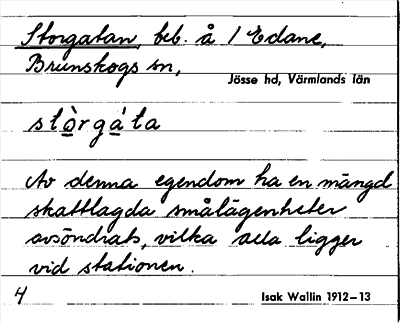 Storgatan, beb. å 1 Edane,
Brunskogs sn,
Jösse hd, Värmlands län
stò̲rgá̲ta
Av denna egendom ha en mängd
skattlagda smålägenheter
avsöndrats, vilka alla ligger
vid stationen.
4
Isak Wallin 1912–13